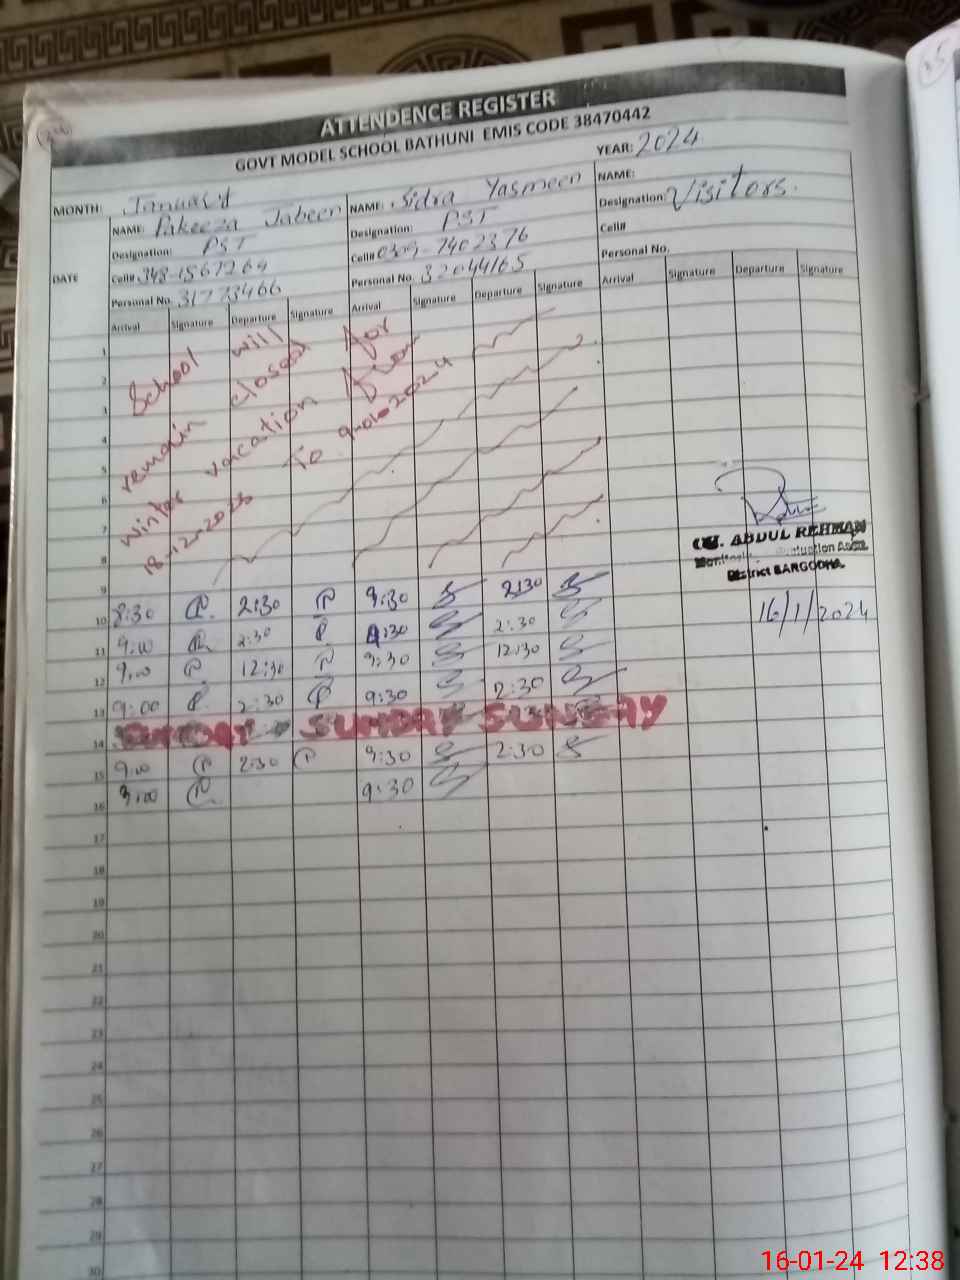 ATTENDENCE REGISTER
GOVT MODEL SCHOOL BATHUNI EMIS CODE 38470442
MONTH: January YEAR: 2024
NAME: Pakeeza Jabeen NAME: Sidra Yasmeen NAME:
Designation: PST Designation: PST Designation: Visitors.
Cell# 348-1567269 Cell# 0309-7402376 Cell#
Personal No. 31773466 Personal No. 32044165 Personal No.
DATE
Arrival Signature Departure Signature Arrival Signature Departure Signature Arrival Signature Departure Signature
School will
remain closed for
winter vacation from
18-12-2023 To 9-01-2024
1
2
3
4
5
6
7
8
9
10 8:30 2:30 9:30 2:30
11 9:00 2:30 9:30 2:30
12 9:00 12:30 9:30 12:30
13 9:00 2:30 9:30 2:30
14 SUNDAY SUNDAY SUNDAY
15 9:00 2:30 9:30 2:30
16 9:00 9:30
17
18
19
20
21
22
23
24
25
26
27
28
29
30
ABDUL REHMAN
District SARGODHA.
16/1/2024
16-01-24 12:38